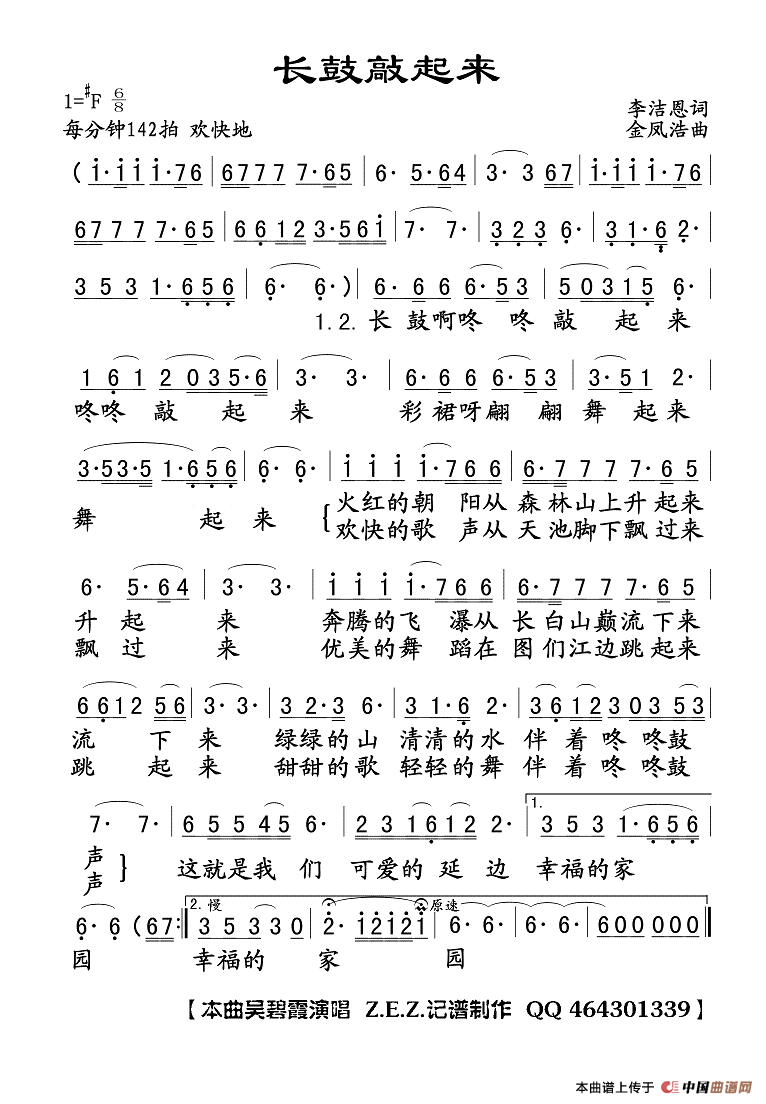 长鼓敲起来
1=#F 6/8
李洁恩词
每分钟142拍 欢快地
金凤浩曲
( i·i i i·76 | 6777 7·65 | 6· 5·64 | 3· 3 67 | i·i i i·76 |
6777 7·65 | 6612 3·561 | 7· 7· | 323 6· | 3·16 2· |
353 1·656 | 6· 6· ) | 6·66 6·53 | 5031 5 6· |
1.2. 长 鼓啊咚 咚 敲 起 来
161 2035·6 | 3· 3· | 6·66 6·53 | 3·51 2· |
咚咚 敲 起 来 彩 裙呀翩 翩 舞 起来
3·53·5 1·656 | 6· 6· | i i i i·766 | 6·777 7·65 |
舞 起 来 { 火红的朝 阳从 森林山上升起来
欢快的歌 声从 天池脚下飘过来
6· 5·64 | 3· 3· | i i i i·766 | 6·777 7·65 |
升 起 来 奔腾的飞 瀑从 长白山巅流下来
飘 过 来 优美的舞 蹈在 图们江边跳起来
6612 56 | 3· 3· | 32·3 6· | 31·6 2· | 3612 303 53 |
流 下 来 绿绿的山 清清的水 伴着咚咚鼓
跳 起 来 甜甜的歌 轻轻的舞 伴着咚咚鼓
7· 7· | 655456· | 2316122· | 1. 353 1·656 |
声 } 这就是我 们 可爱的 延 边 幸福的家
声
6· 6 (67:‖ 2. 慢 353330 | 2· i2i2i 原速 | 6· 6· | 6· 6· | 600000 ‖
园 幸福的 家 园
【本曲吴碧霞演唱 Z.E.Z.记谱制作 QQ 464301339】
本曲谱上传于 中国曲谱网